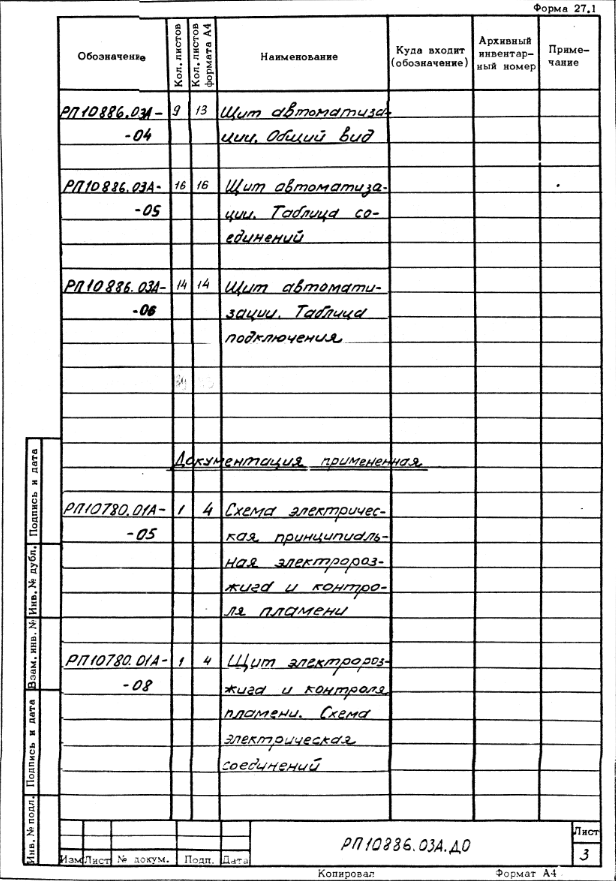 Форма 27.1
Обозначение Кол. листов Кол. листов формата А4 Наименование Куда входит (обозначение) Архивный инвентарный номер Примечание
РП10886.03А- 9 13 Щит автоматиза-
-04 ции. Общий вид
РП10886.03А- 16 16 Щит автоматиза-
-05 ции. Таблица со-
единений
РП10886.03А- 14 14 Щит автомати-
-06 зации. Таблица
подключения
Документация примененная
РП10780.01А- 1 4 Схема электричес-
-05 кая принципиаль-
ная электророз-
жига и контро-
ля пламени
РП10780.01А- 1 4 Щит электророз-
-08 жига и контроля
пламени. Схема
электрическая
соединений
Подпись и дата
Инв. № дубл.
Взам. инв. №
Подпись и дата
Инв. № подл.
Изм Лист № докум. Подп. Дата
РП10886.03А.ДО
Лист
3
Копировал Формат А4